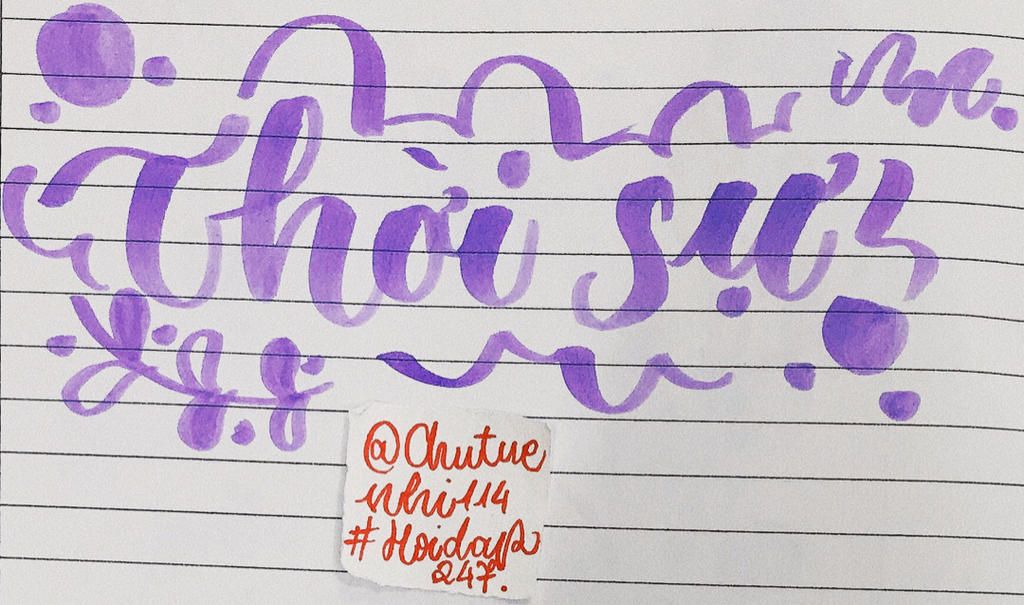 Thời sự
@Chutue
nhi114
#Hoidap
247.